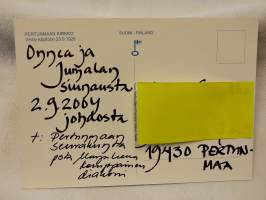 PERTUNMAAN KIRKKO
Vihitty käyttöön 23.9.1928
SUOMI - FINLAND
Onnea ja
Jumalan
siunausta
2.9.2004
johdosta
t: Pertunmaan
seurakunta
diakoni
19430 PERTUN-
MAA